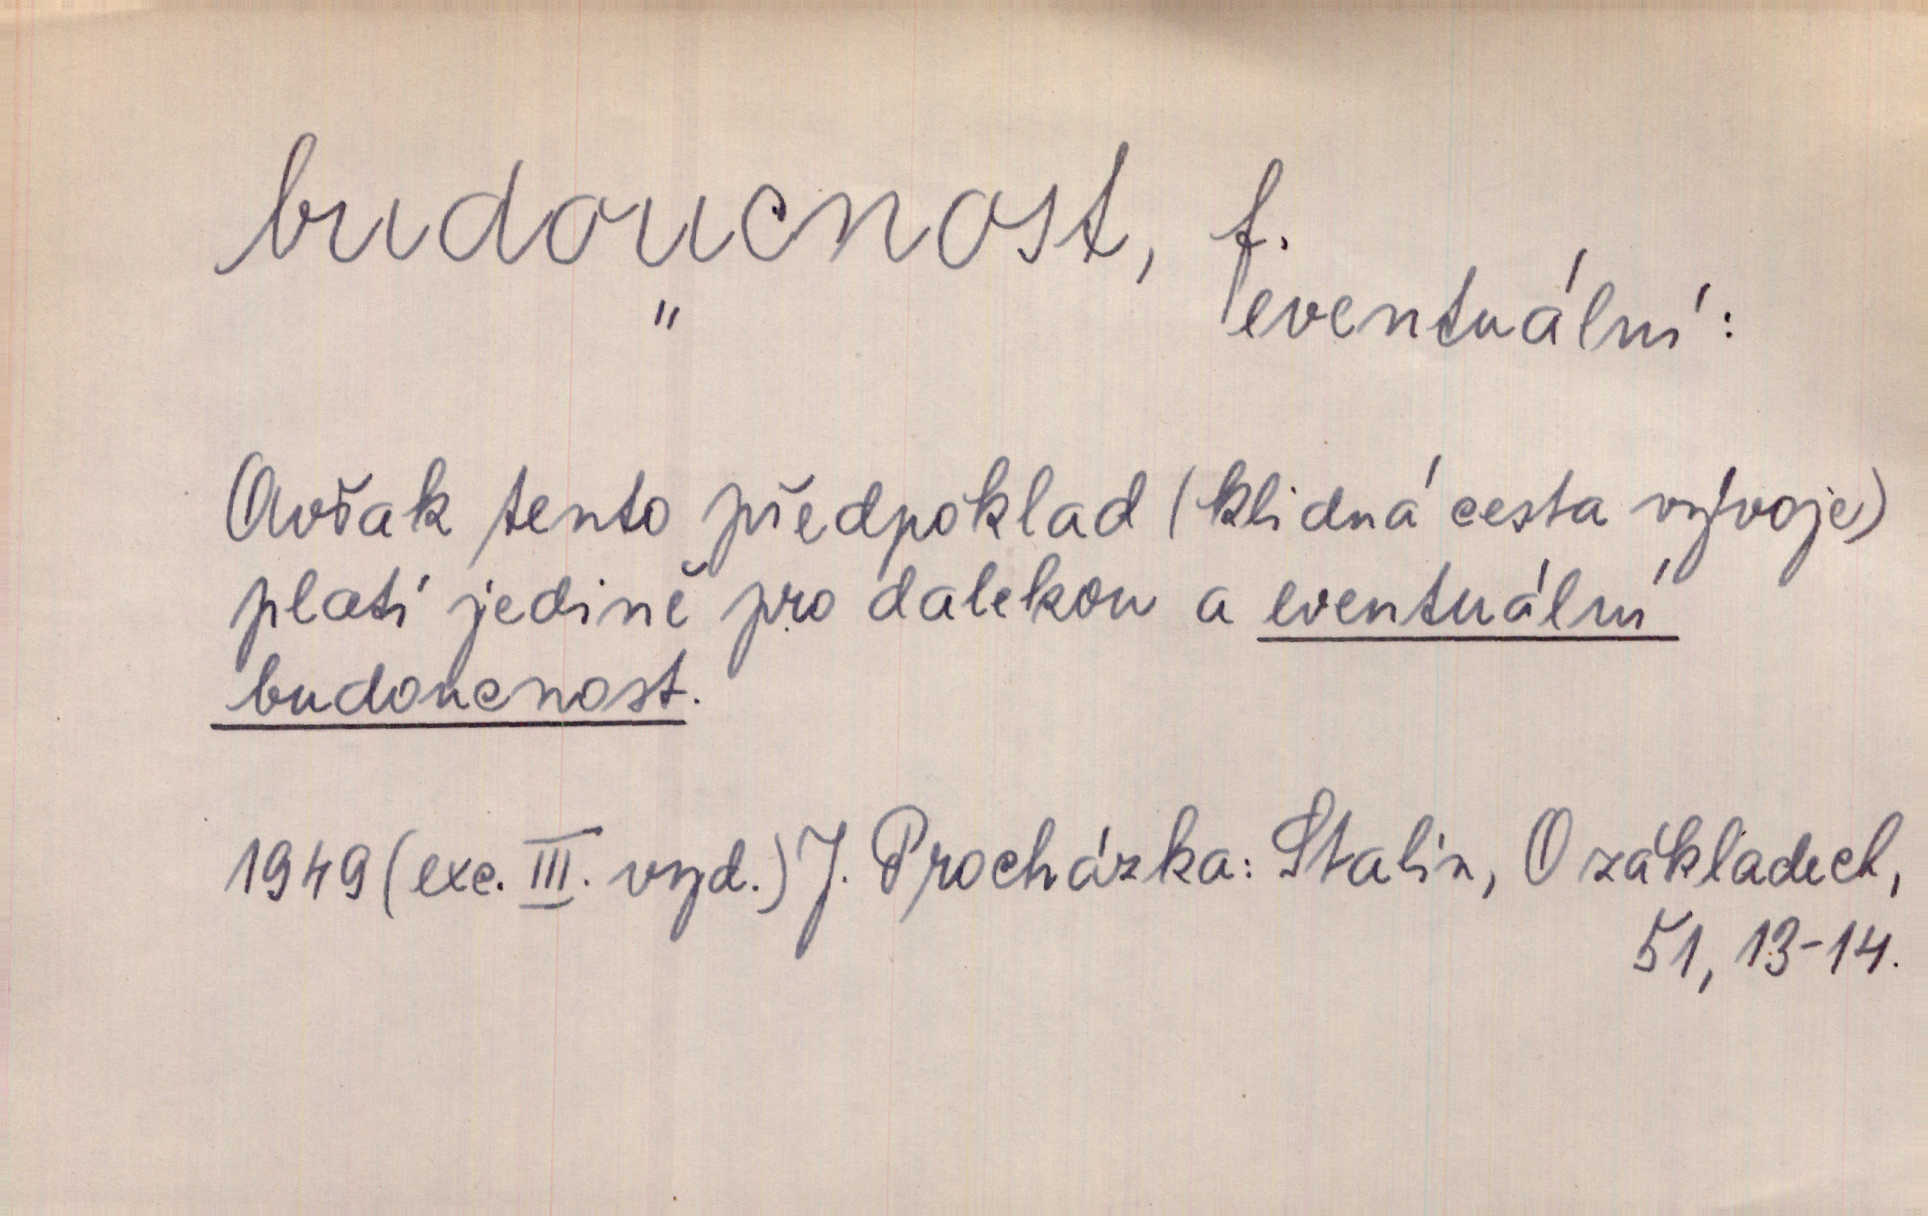 budoucnost, f.
" eventuální:
Avšak tento předpoklad (klidná cesta vývoje)
platí jedině pro dalekou a eventuální
budoucnost.
1949 (exc. III. vyd.) J. Procházka: Stalin, O základech,
51, 13-14.